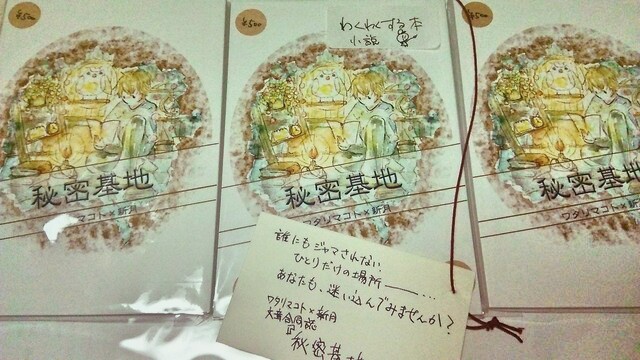 ¥500
¥500
¥500
わくわくする本
小説
秘密基地
マコト×新月
秘密基地
ワタリマコト×新月
秘密基地
ワタリマコト×新月
誰にもジャマされない
ひとりだけの場所――…
あなたも、迷い込んでみませんか？
ワタリマコト×新月
合同誌
秘密基地